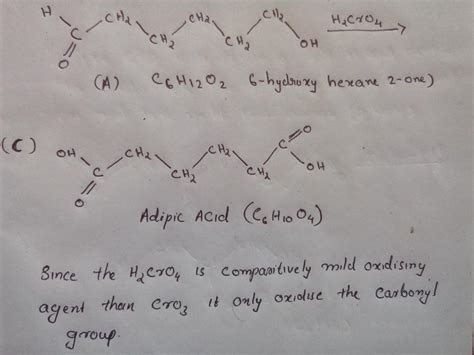 H CH₂ CH₂ CH₂ H₂CrO₄
C CH₂ CH₂ OH
O
(A) C₆H₁₂O₂ 6-hydroxy hexane 2-one)
(C) OH CH₂ CH₂ C O
C CH₂ CH₂ OH
O
Adipic Acid (C₆H₁₀O₄)
Since the H₂CrO₄ is comparitively mild oxidising
agent than CrO₃ it only oxidise the carbonyl
group.